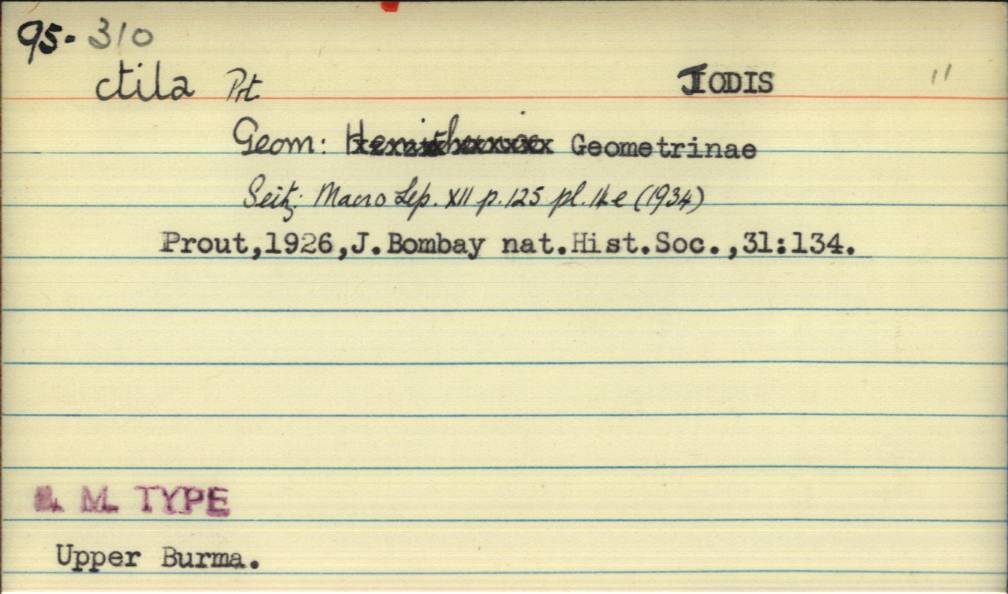 95-310
ctila Prt JODIS 11
Geom: Geometrinae
Seitz; Macro Lep. XII p.125 pl. e (1934)
Prout,1926,J.Bombay nat.Hist.Soc.,31:134.
B. M. TYPE
Upper Burma.